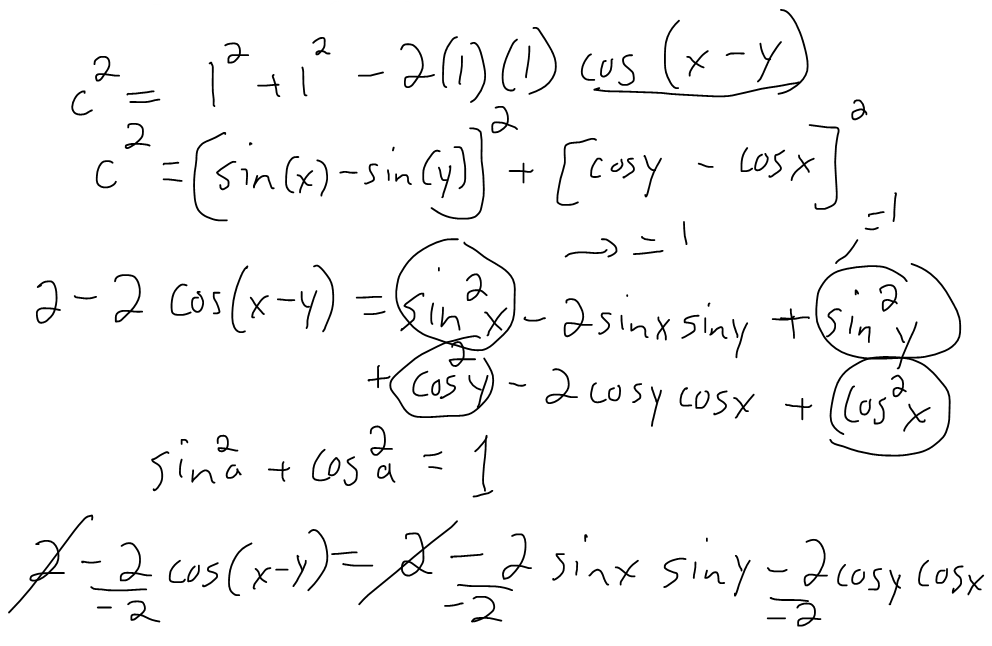 c² = 1² + 1² - 2(1)(1) cos(x-y)
c² = [sin(x) - sin(y)]² + [cosy - cosx]²
→ = 1 =1
2 - 2 cos(x-y) = sin²x - 2 sinx siny + sin²y
+ cos²y - 2 cosy cosx + cos²x
sin²a + cos²a = 1
2 - 2 cos(x-y) = 2 - 2 sinx siny - 2 cosy cosx
-2 -2 -2